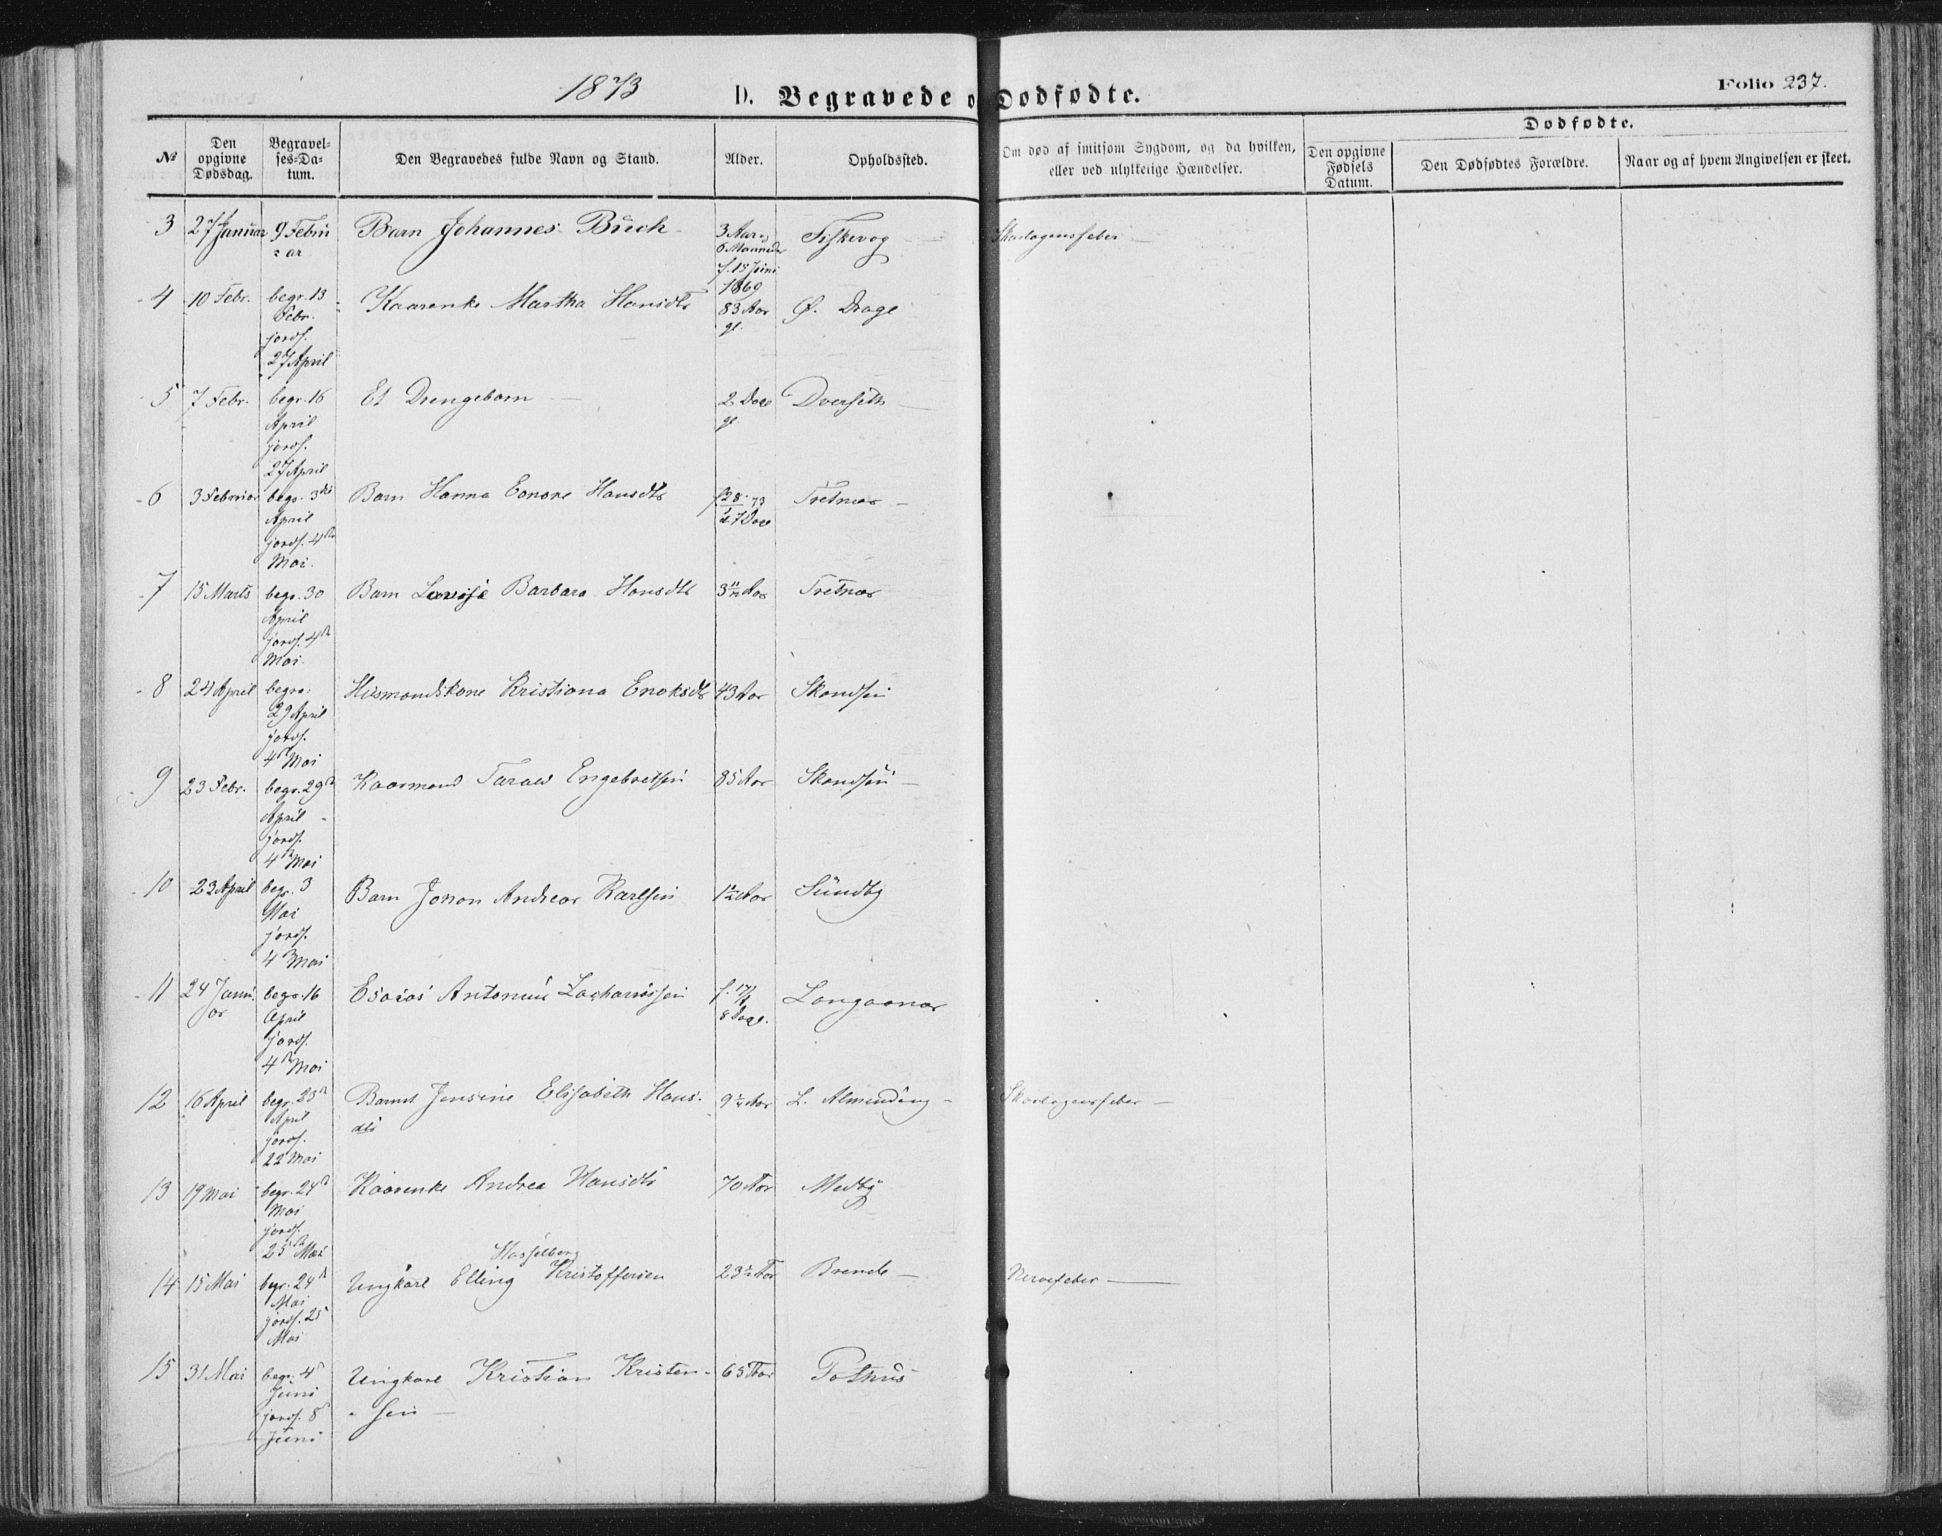 1873
D. Begravede o Dødfødte.
Folio 237.
Dødfødte.
№ Den opgivne Dødsdag. Begravelses-Datum. Den Begravedes fulde Navn og Stand. Alder. Opholdssted. Om død af smitsom Sygdom, og da hvilken, eller ved ulykkelige Hændelser. Den opgivne Fødsels Datum. Den Dødfødtes Forældre. Naar og af hvem Angivelsen er skeet.
3 27 Januar 9 Februar Barn Johannes Buch 3 Aar 6 Maaneder f. 15 Juni 1869 Fiskevog Skarlagensfeber
4 10 Febr. begr. 13 Febr. jordf. 27 April Kaarenke Martha Hansdtr 83 Aar gl. Ø. Drage
5 7 Febr. begr. 16 April jordf. 27 April Et Drengebarn 2 Dage gl. Dverseth
6 3 Februar begr. 3die April jordf. 4de Mai. Barn Hanna Eonore Hansdtr 7 Dage Tretnæs
7 15 Marts begr. 30 April jordf. 4de Mai. Barn Lovise Barbara Hansdtr 3 11/12 Aar Tretnæs
8 24 April begra: 29 April jordf. 4de Mai Husmandskone Kristiana Enoksdtr 43 Aar Skandsen
9 23 Febr. begr. 29de April jordf. 4de Mai Kaarmand Tarald Engebretsen 85 Aar Skandsen
10 23 April begr. 3 Mai jordf. 4de Mai Barn Jonon Andreas Karlsen 1 1/2 Aar Sundby
11 24 Januar begr. 16 April jordf. 4de Mai Esaias Antonius Zachariassen f. 17/1 8 Dage. Langaanæs
12 16 April begr. 25de April jordf. 22 Mai Barnet Jensine Elisabeth Hansdtr 9 1/4 Aar L. Alminding Skarlagensfeber
13 19 Mai begr. 24de Mai jordf. 25de Mai Kaarenke Andrea Hansdtr 70 Aar Medby
14 15 Mai begr. 24de Mai jordf. 25 Mai Ungkarl Elling Hasselberg Kristoffersen 23 1/2 Aar Brende Nervefeber
15 31 Mai begr. 4de Juni jordf. 8de Juni Ungkarl Kristian Kristensen 65 Aar Pothus